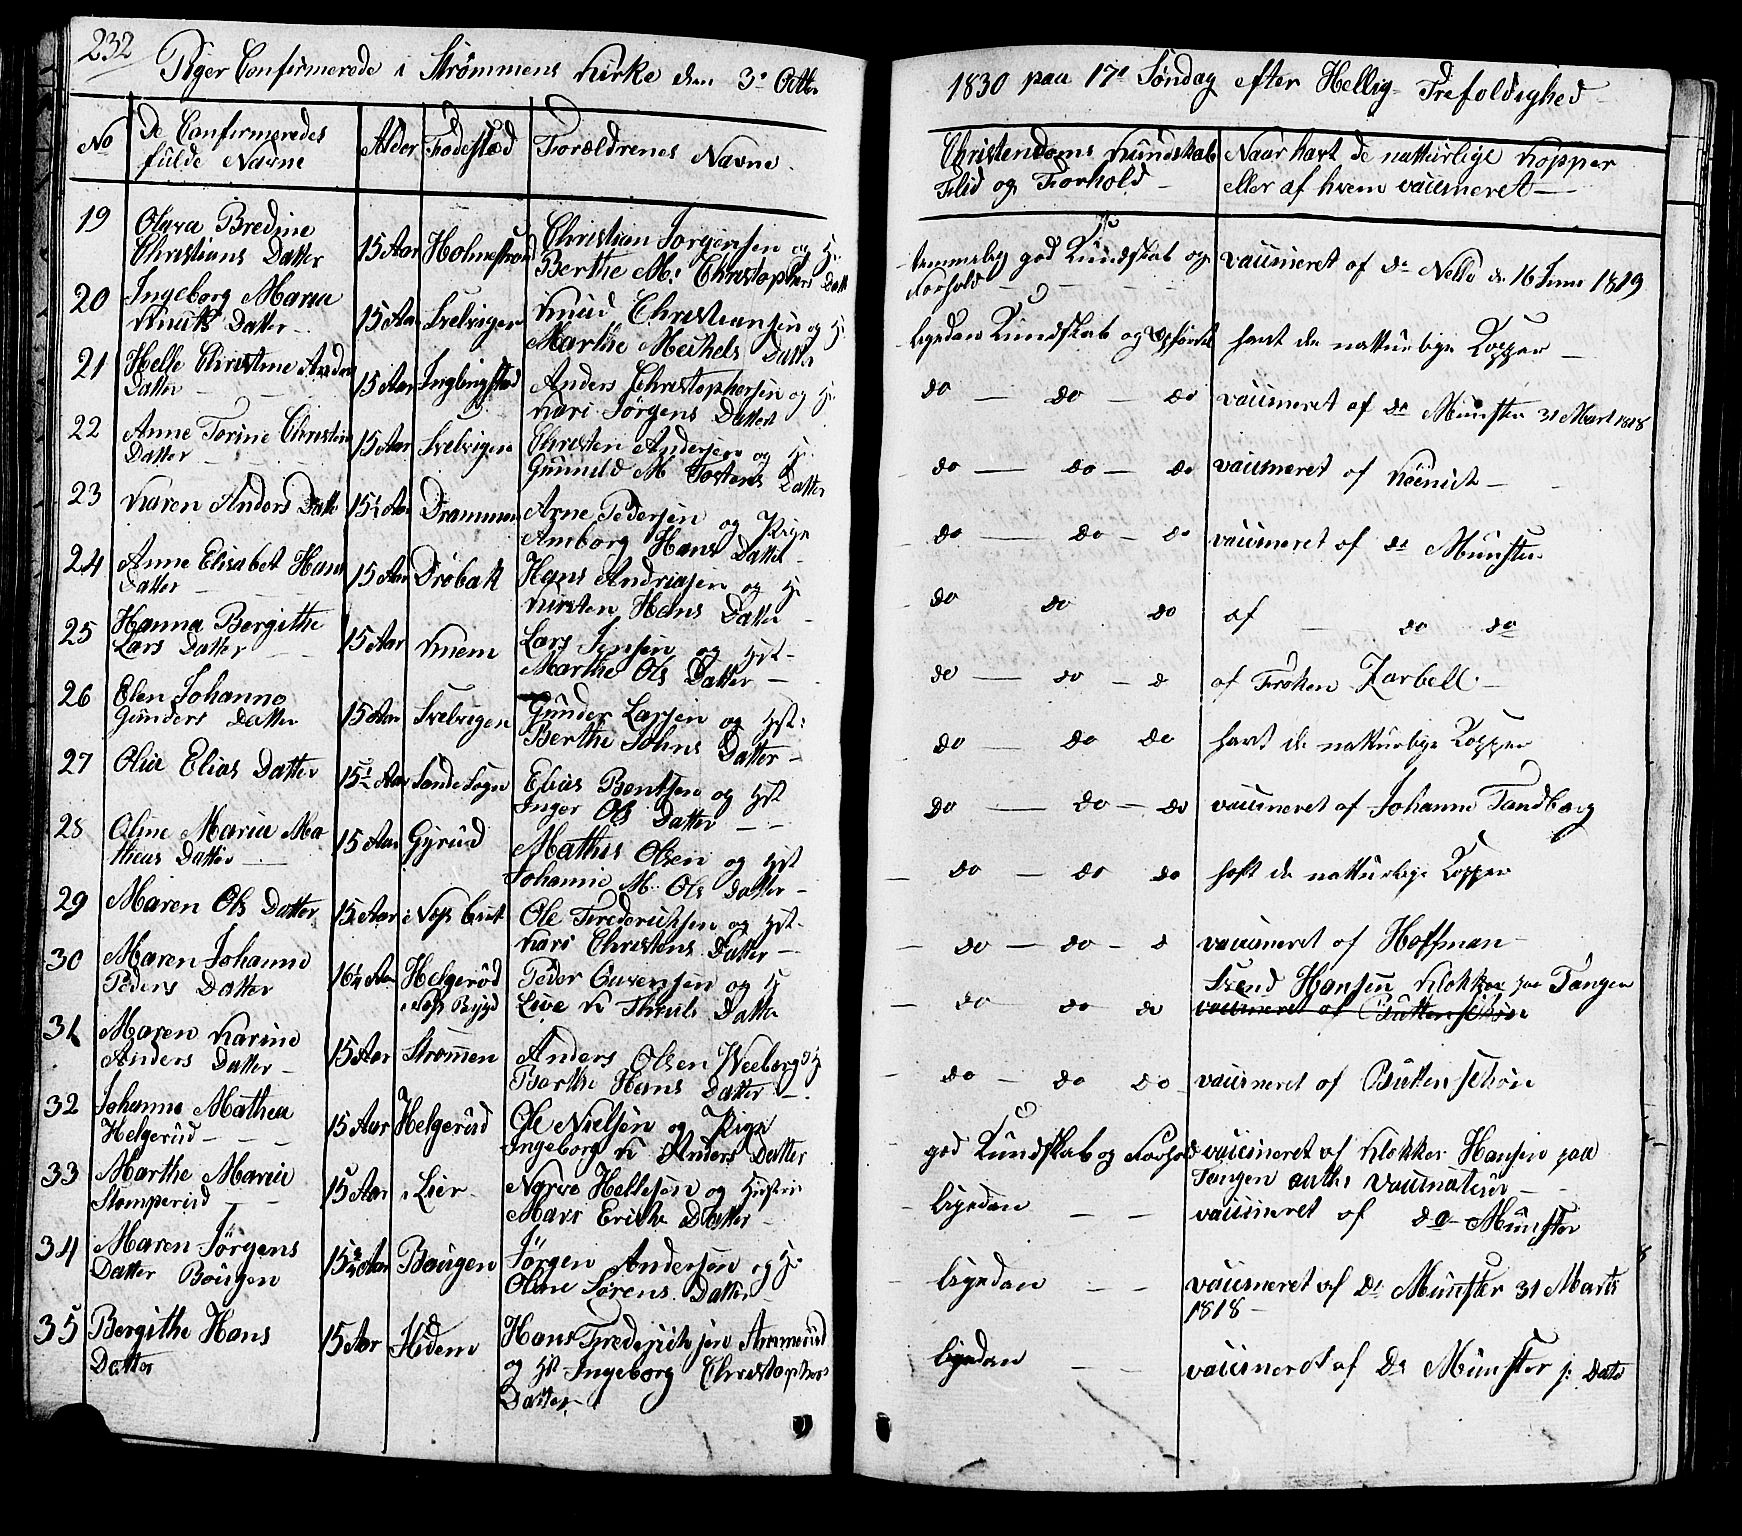 232
Piger Confirmerede i Strømmens Kirke den 3e Octbr
1830 paa 17e Søndag efter Hellig Trefoldighed
No
De Confirmeredes
fulde Navne
Alder
Fødestæd
Forældrenes Navne
Christendoms Kundskab
Flid og Forhold
Naar havt de naturlige Kopper
eller af hvem vaccineret
19
Olava Bredine
Christians Datter
15 Aar
Holmestrand
Christian Jorgensen og H
Berthe M: Christophers Datt
temmelig god Kundskab og
Forhold
vaccineret af dr Nelle d 16 Juni 1819
20
Ingeborg Maria
Knuts Datter
15 Aar
Svelvigen
Knud Christiansen og H
Marthe Michels Datter
ligedan Kundskab og Opførsel
havt de natturlige Kopper
21
Helle Christine Anders
Datter
15 Aar
Anders Christophersen og H
Kari Jørgens Datter
do do do
vaccineret af dr Münster 31 Mart 1818
22
Anne Torine Christens
Datter
15 Aar
Svelvigen
Christen Andersen og H
Gunnild M Tostens Datter
do do do
vaccineret af
23
Karen Anders Datt
15½ Aar
Drammen
Arne Pedersen og Pige
Amborg Hans Datter
do do do
vaccineret af dr Münster
24
Anne Elisabet Hans
Datter
15 Aar
Dröbak
Hans Andriasen og H
Kirsten Hans Datter
do do do
af do do
25
Hanna Bergithe
Lars Datter
15 Aar
Knem
Lars Jensen og Hst
Marthe Ols Datter
do do d
af Frøken Zarbell
26
Elen Johanne
Gunders Datter
15 Aar
Svelvigen
Gunder Larsen og Hst:
Berthe Johns Datter
do do do
havt de natturlige Kopper
27
Olia Elias Datter
15½ Aar
Sande Sogn
Elias Bentsen og Hst
Inger Ols Datter
do do do
vaccineret af Johanne Tandberg
28
Oline Maria Ma
theas Datter
15 Aar
Gyrud
Mathis Olsen og Hst
Johanne M. Ols Datter
do do do
haft de natturlige Kopper
29
Maren Ols Datter
15 Aar
Ole Frederiksen og Hst
Kari Christens Datter
do do d
vaccineret af Hoffman
30
Maren Johanne
Peders Datter
16½ Aar
Helgerud
Peder Gurensen og H
Live K Thruls Datter
do do do
Svend Hansen Klokker paa Tangen
vaccineret af Buttenschøn
31
Maren Karine
Anders Datter
15 Aar
Strømmen
Anders Olsen Weeberg og H
Berthe Hans Datter
do do do
vaccineret af Buttenschøn
32
Johanne Mathea
Helgerud
15 Aar
Helgerud
Ole Nielsen og Pige
Ingeborg K Anders Datter
god Kundskab og Forhold
vaccineret af Klokker Hansen paa
Tangen auth: Vaccinateur
33
Marthe Maria
Stomperud
15 Aar
i Lier
Narve Hellesen og Hustru
Mari Eriks Datter
ligedan
vaccineret af dr Münster
34
Maren Jørgens
Datter Bøugen
15¾ Aar
Bøugen
Jørgen Andersen og H
Oline Sørens Datter
ligedan
vaccineret af Dr Münster 31 Marts
1818
35
Bergithe Hans
Datter
15 Aar
Hedem
Hans Frederiksen Ammerud
og Hst Ingeborg Christophers
Datter
ligedan
vaccineret af Dr Münster s: Dato